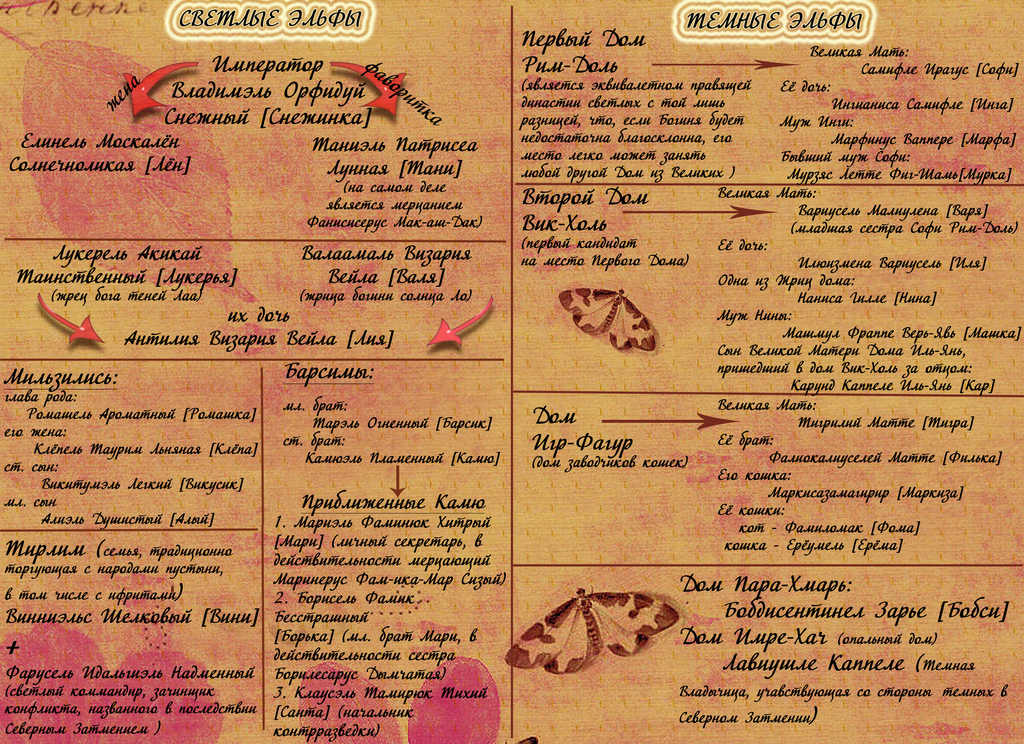 СВЕТЛЫЕ ЭЛЬФЫ
Император
Владимэль Орфидуй
Снежный [Снежинка]
жена
фаворитка
Елинель Москалён
Солнечноликая [Лён]
Таниэль Патрисея
Лунная [Тани]
(на самом деле
является мерцанием
Фанисисерус Мак-аш-Дак)
Лукерель Акикай
Таинственный [Лукерья]
(жрец бога теней Лаа)
Валаамаль Визария
Вейла [Валя]
(жрица богини солнца Ло)
их дочь
Антилия Визария Вейла [Лия]
Мильзились:
глава рода:
Ромашель Ароматный [Ромашка]
его жена:
Клёпель Таурим Льняная [Клёпа]
ст. сын:
Викитумэль Легкий [Викусик]
мл. сын
Алиэль Душистый [Алый]
Тирлим (семья, традиционно
торгующая с народами пустыни,
в том числе с ифритами)
Винниэльс Шелковый [Вини]
+
Фарусель Идальгиэль Надменный
(светлый коммандир, зачинщик
конфликта, названного в последствии
Северным Затмением )
Барсимы:
мл. брат:
Тарэль Огненный [Барсик]
ст. брат:
Камюэль Пламенный [Камю]
Приближенные Камю
1. Мариэль Фаминюк Хитрый
[Мари] (личный секретарь, в
действительности мерцающий
Маринерус Фам-ика-Мар Сизый)
2. Борисель Фамик
Бесстрашный
[Борька] (мл. брат Мари, в
действительности сестра
Борилесарус Дымчатая)
3. Клаусэль Тамирюк Тихий
[Санта] (начальник
контрразведки)
ТЕМНЫЕ ЭЛЬФЫ
Первый Дом
Рим-Доль
(является эквивалетном правящей
династии светлых с той лишь
разницей, что, если Богиня будет
недостаточна благосклонна, его
место легко может занять
любой другой Дом из Великих )
Великая Мать:
Самифле Ирагус [Софи]
Её дочь:
Иншаниса Самифле [Инга]
Муж Инги:
Марфинус Ваппере [Марфа]
Бывший муж Софи:
Мурзяс Летте Фиг-Шамь[Мурка]
Второй Дом
Вик-Холь
(первый кандидат
на место Первого Дома)
Великая Мать:
Вариусель Малиулена [Варя]
(младшая сестра Софи Рим-Доль)
Её дочь:
Илюизмена Вариусель [Иля]
Одна из Жриц дома:
Наниса Гилле [Нина]
Муж Нины:
Машмул Фраппе Верь-Явь [Машка]
Сын Великой Матери Дома Иль-Янь,
пришедший в дом Вик-Холь за отцом:
Карунд Каппеле Иль-Янь [Кар]
Дом
Игр-Фагур
(дом заводчиков кошек)
Великая Мать:
Тигрилий Матте [Тигра]
Её брат:
Фалиокалиуселей Матте [Филька]
Его кошка:
Маркисазамагирир [Маркиза]
Её кошки:
кот - Фамиломак [Фома]
кошка - Ерёумель [Ерёма]
Дом Пара-Хмарь:
Боббисентинел Зарье [Бобси]
Дом Имре-Хач (опальный дом)
Лавиушле Каппеле (Темная
Владычица, учавствующая со стороны темных в
Северном Затмении)